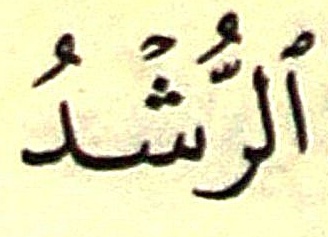 ٱلرُّشْدُ